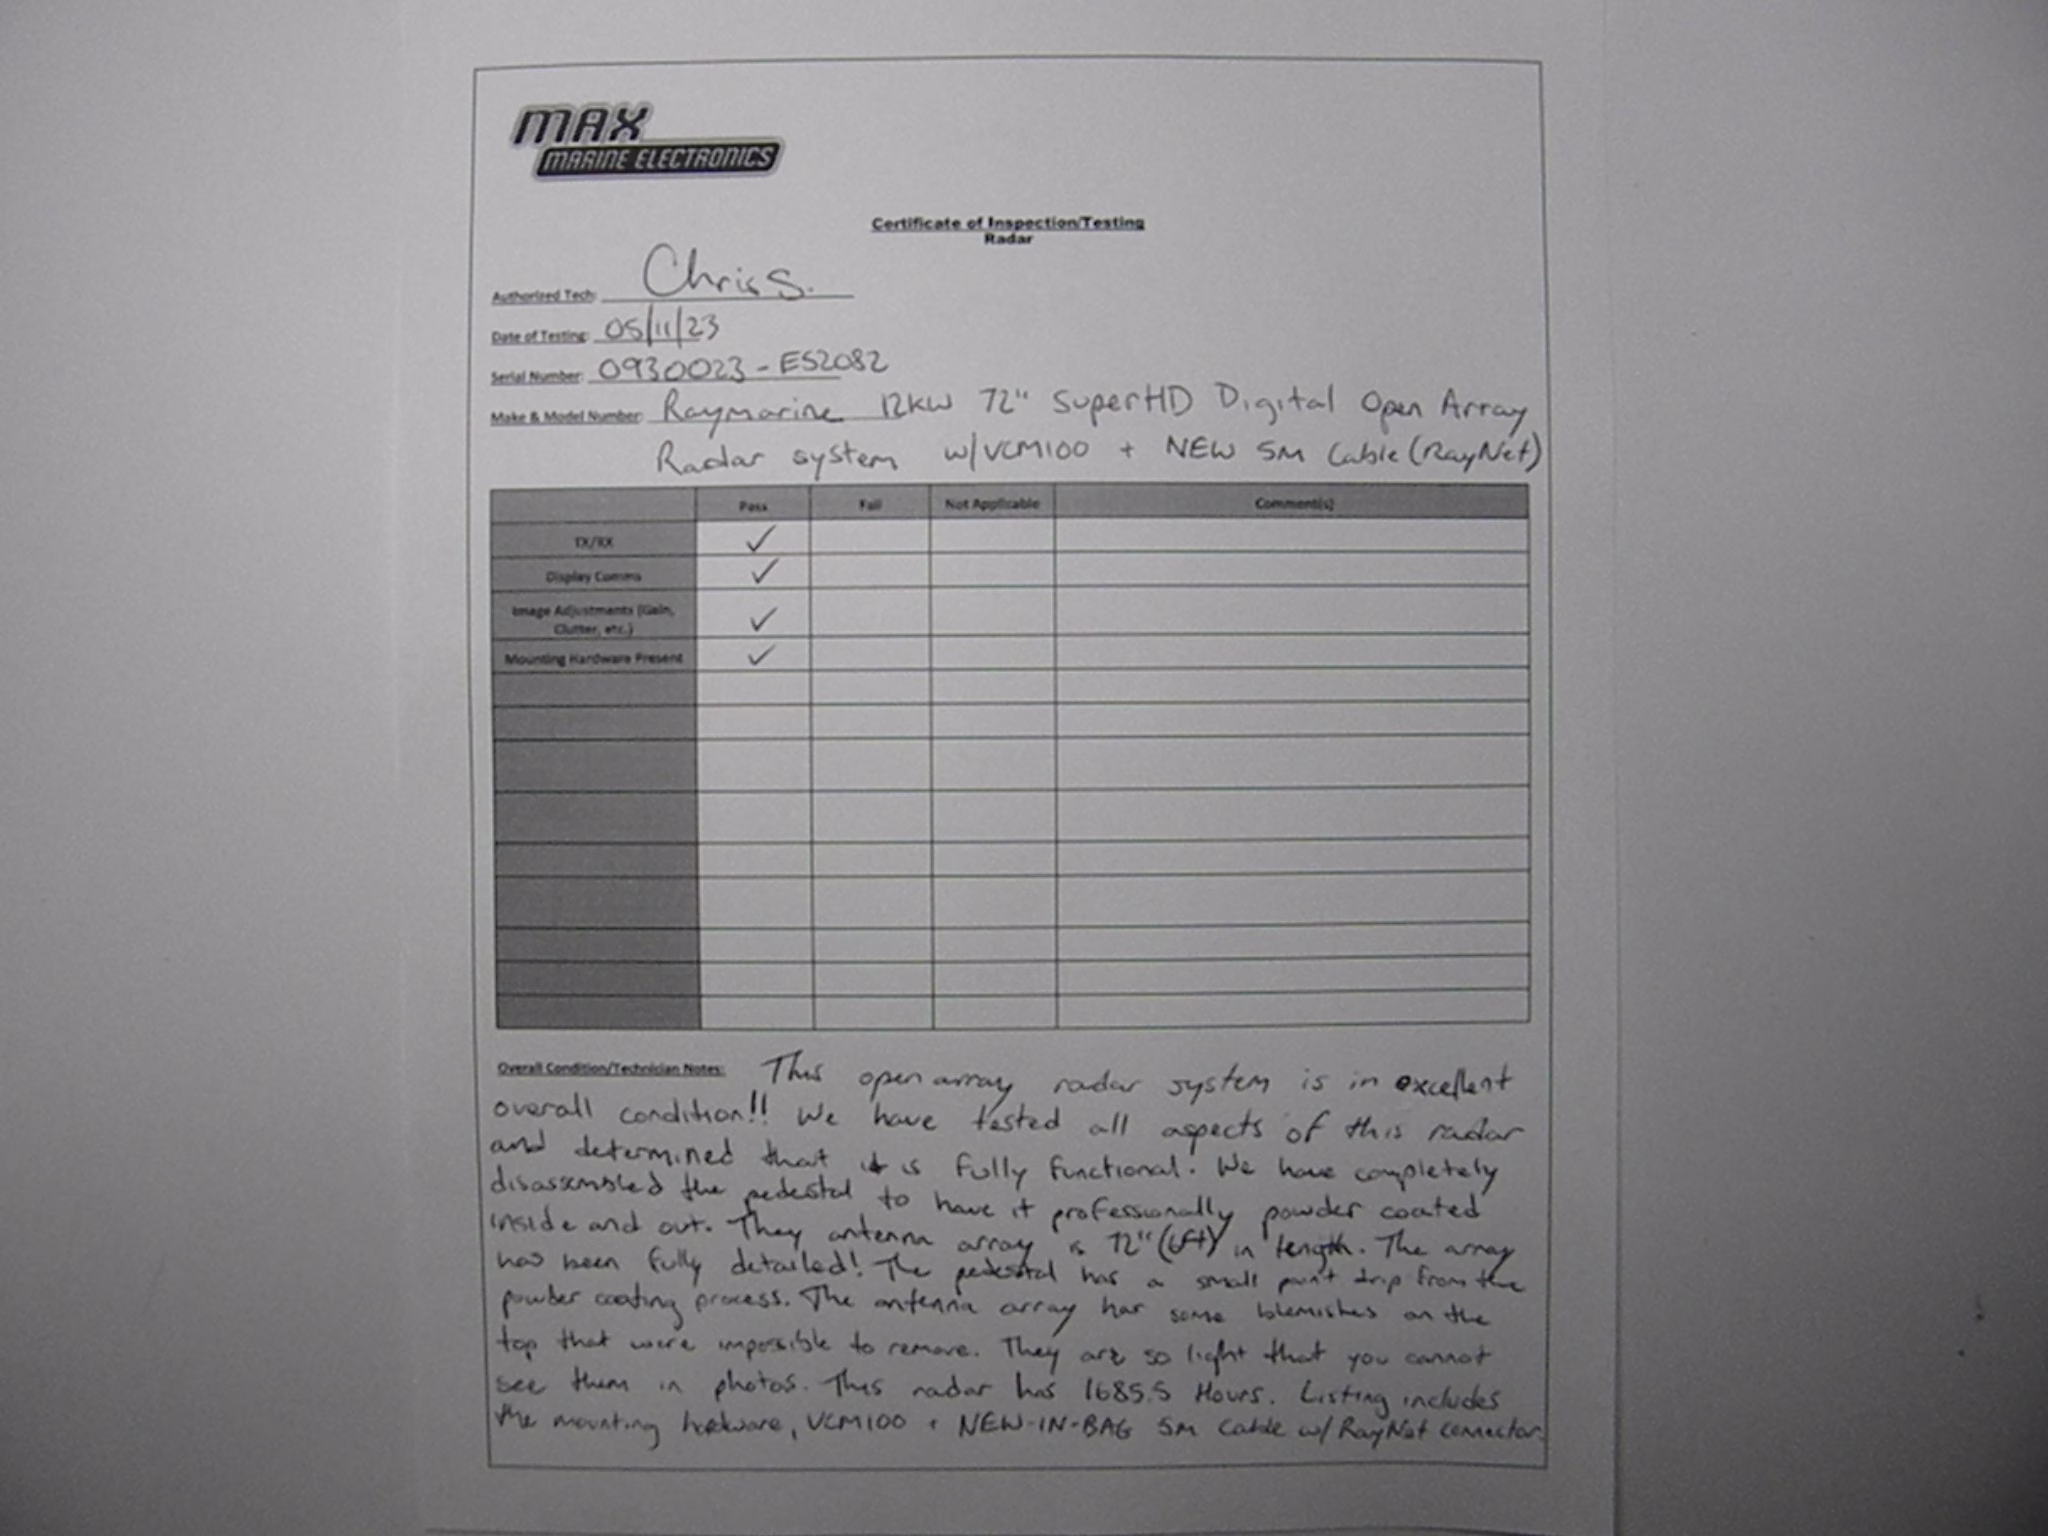 MAX
MARINE ELECTRONICS
Certificate of Inspection/Testing
Radar
Authorized Tech: Chris S.
Date of Testing: 05/11/23
Serial Number: 0930023-ES2082
Make & Model Number: Raymarine 12KW 72" SuperHD Digital Open Array
Radar system w/VCM100 + NEW 5M Cable (RayNet)
Pass Fail Not Applicable Comment(s)
TX/RX ✓
Display Comms ✓
Image Adjustments (Gain,
Clutter, etc.) ✓
Mounting Hardware Present ✓
Overall Condition/Technician Notes: This open array radar system is in excellent
overall condition!! We have tested all aspects of this radar
and determined that it is fully functional. We have completely
disassembled the pedestal to have it professionally powder coated
inside and out. They antenna array is 72" (6ft) in length. The array
has been fully detailed! The pedestal has a small paint drip from the
powder coating process. The antenna array has some blemishes on the
top that were impossible to remove. They are so light that you cannot
see them in photos. This radar has 1685.5 Hours. Listing includes
the mounting hardware, VCM100 + NEW-IN-BAG 5M Cable w/ RayNet connector.